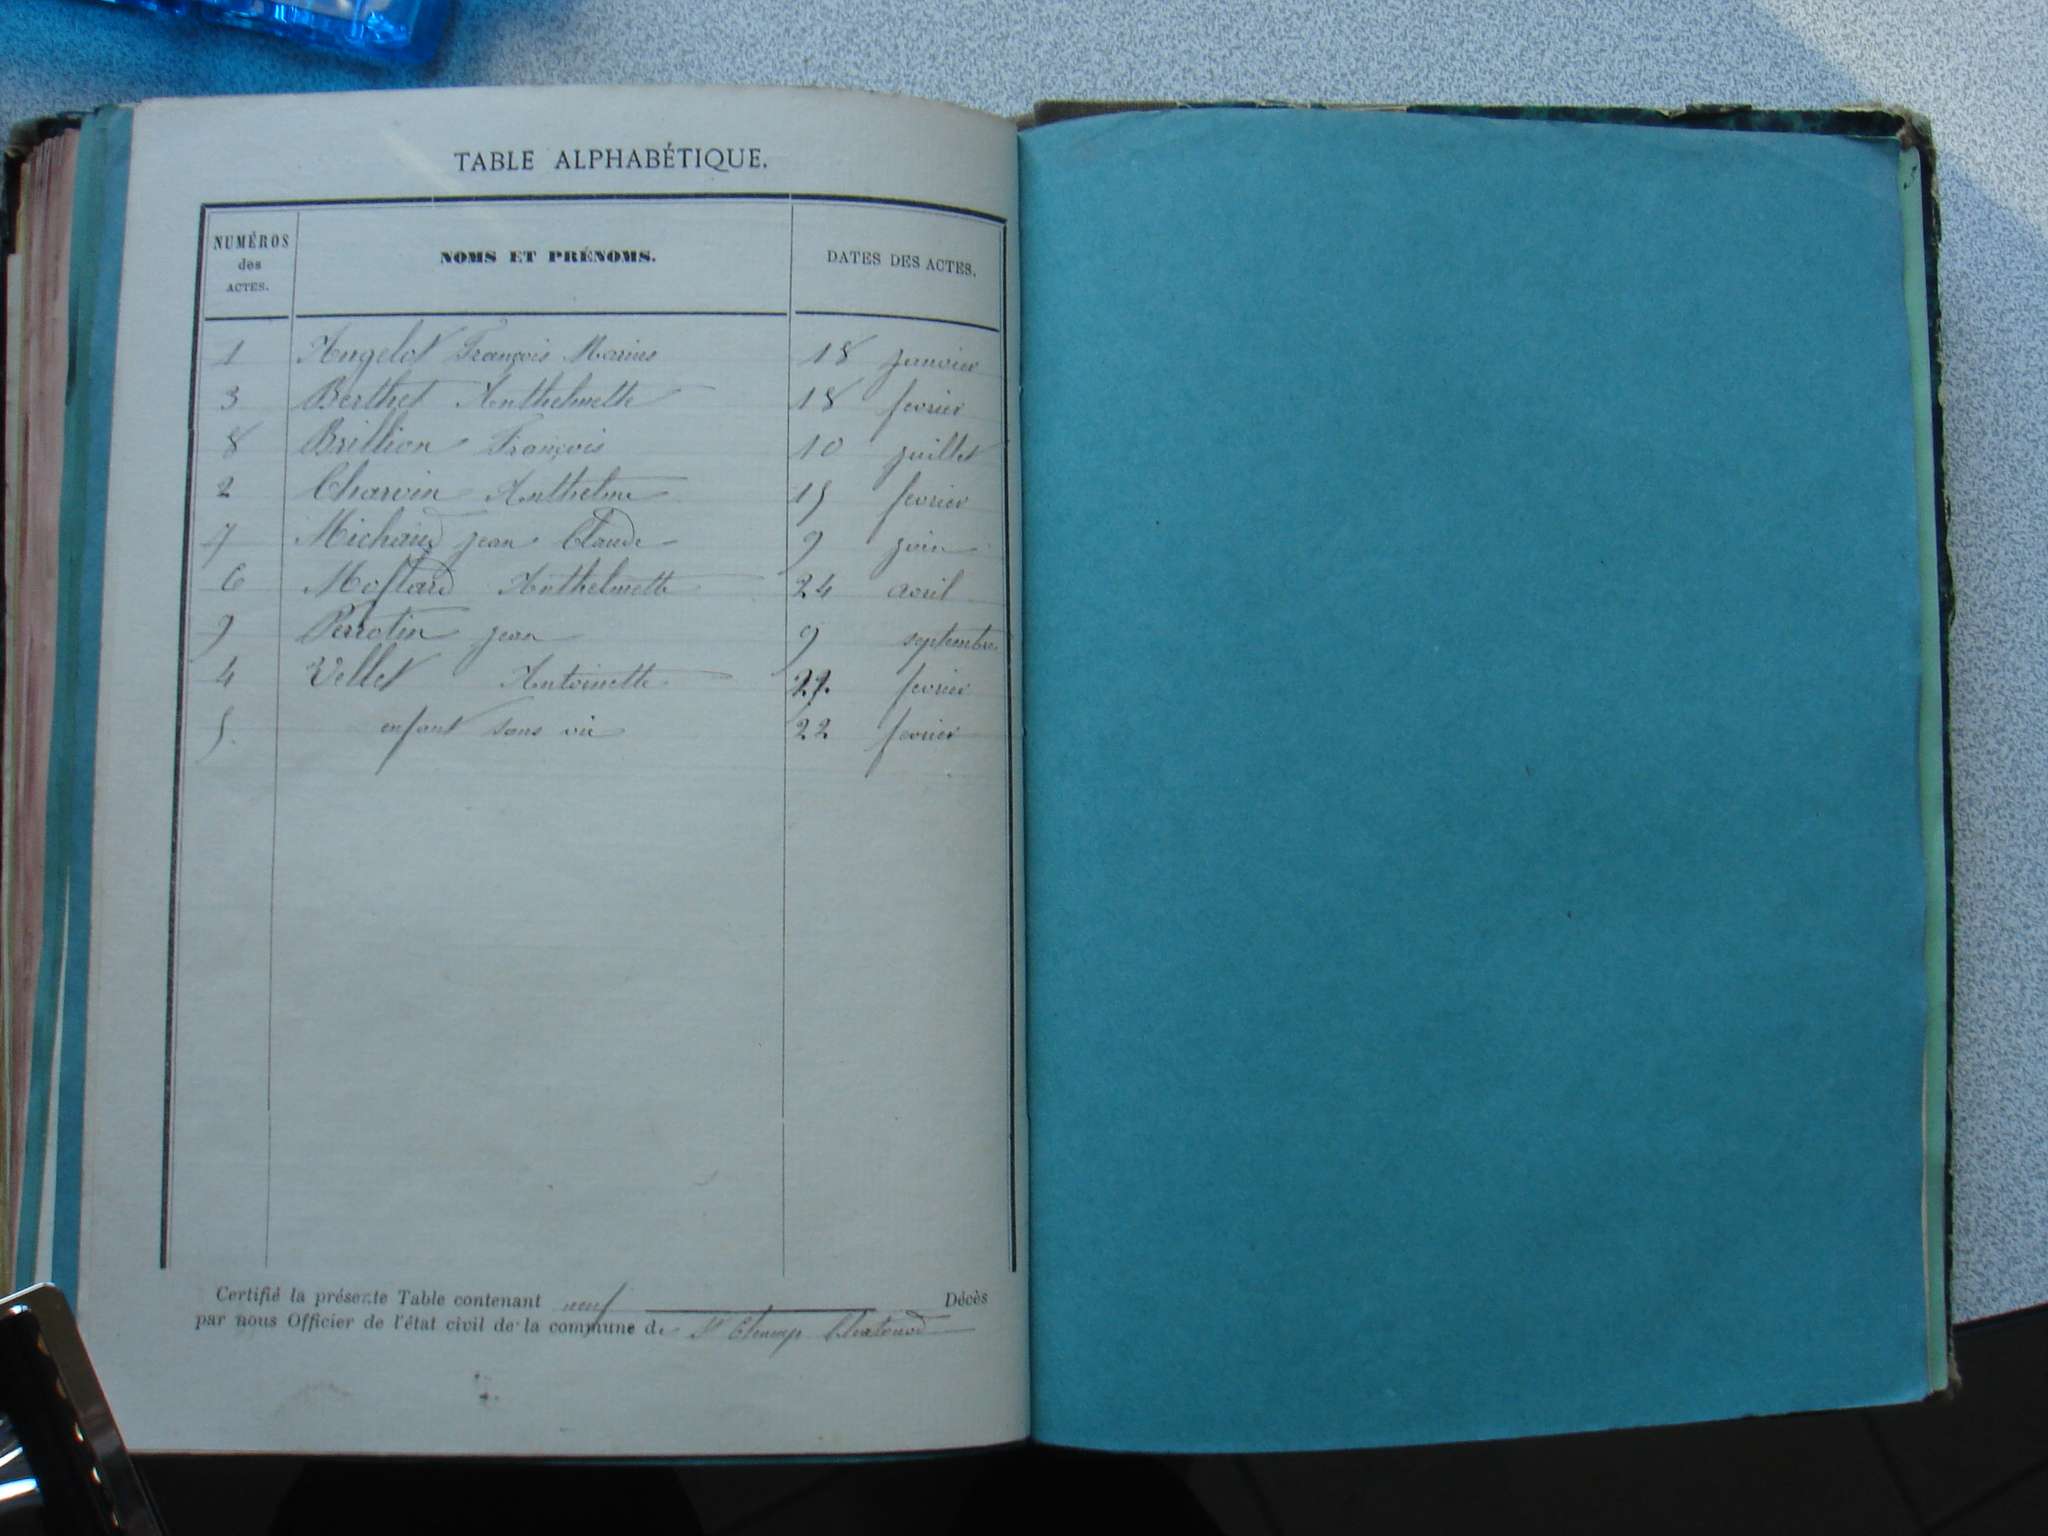 TABLE ALPHABÉTIQUE.
NUMÉROS des ACTES. NOMS ET PRÉNOMS. DATES DES ACTES.
1 Angelot François Marius 18 janvier
3 Berthet Anthelmette 18 fevrier
8 Brillion François 10 juillet
2 Charvin Anthelme 15 fevrier
7 Michaud jean Claude 9 juin
6 Mollard Anthelmette 24 avril
9 Perrotin jean 9 septembre
4 Vellet Antoinette 22 fevrier
5. enfant sans vie 22 fevrier
Certifié la présente Table contenant neuf Décès
par nous Officier de l'état civil de la commune de St Champ Chatonod